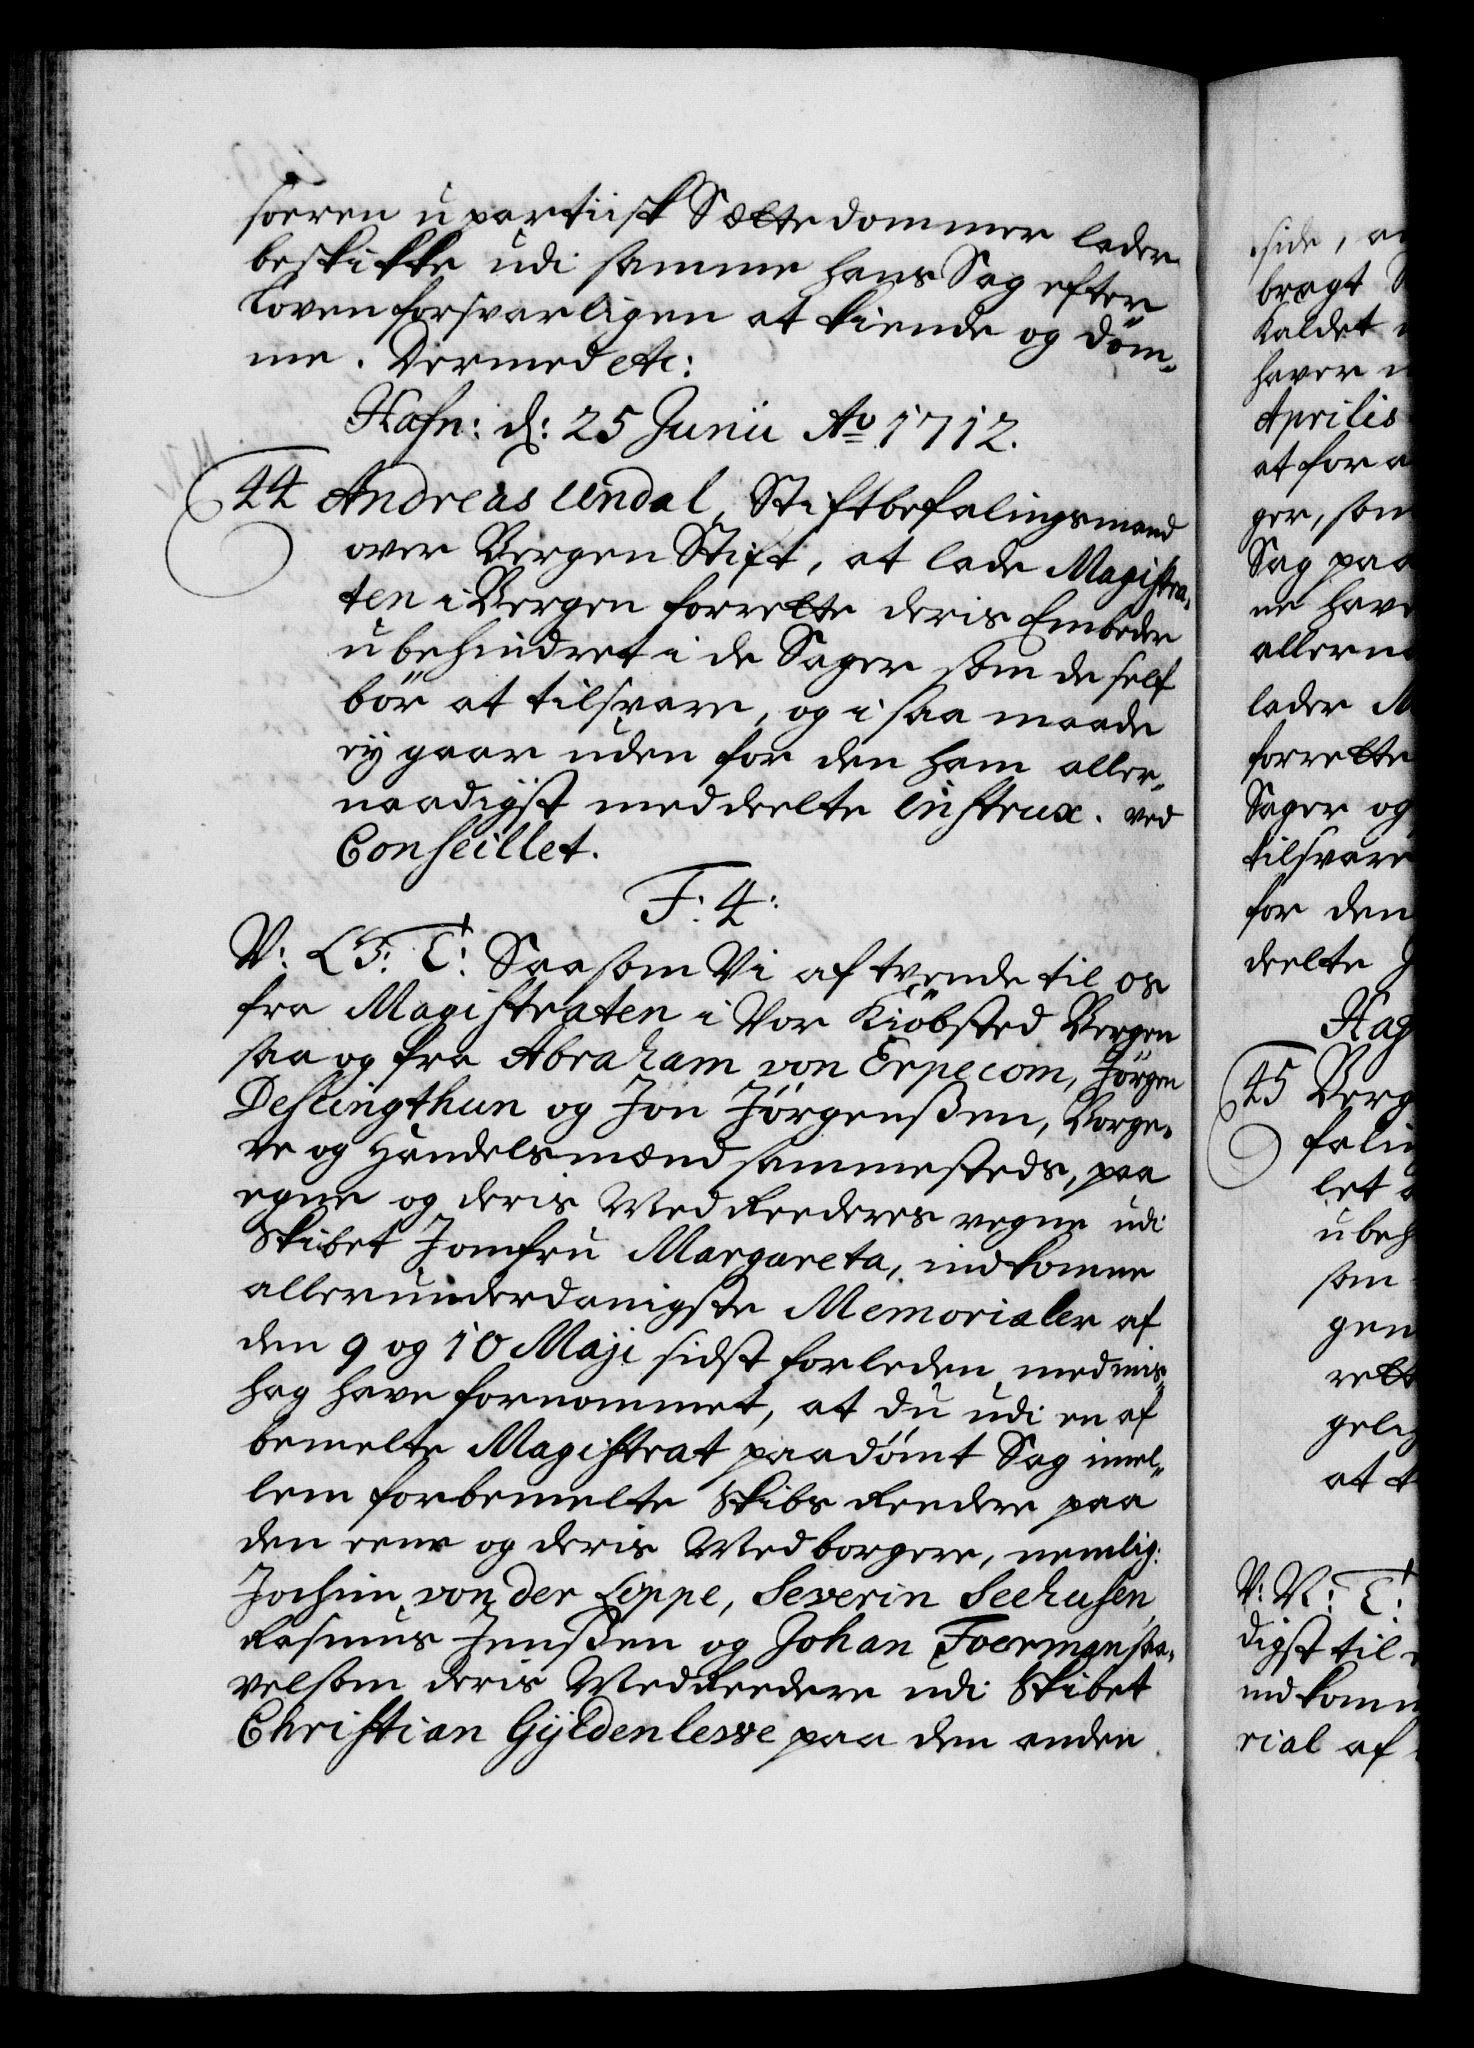 soeren upartiisk Sættedommer lader
beskikke udi samme hans Sag efter
Loven forsvarligen at kiende og döm-
me. Dermed etc:
Hafn: d: 25 Junii Ao 1712.
44 Andreas Undal, Stiftbefalingsmand
over Bergen Stift, at lade Magistra-
ten i Bergen forrette deris Embede
ubehindret i de Sager som de self
bör at tilsvare, og i saa maade
ey gaar uden for den ham aller-
naadigst meddeelte Instrux. ved
Conseillet.
F: 4:
V: G: T: Saasom Vi af tvende til os
fra Magistraten i Vor Kiöbsted Bergen
saa og fra Abraham von Erpecom, Jörgen
Deslingthun og Jon Jörgenßen, Borge-
re og Handelsmænd sammesteds, paa
egne og deris Med Reederes vegne udi
Skibet Jomfru Margareta, indkomne
allerunderdanigste Memorialer af
den 9 og 10 Maji sidst forleden, med mis-
hag have fornommet, at du udi en af
bemelte Magistrat paadömt Sag imel-
lem forbemelte Skibs Reedere paa
den eene og deris Medborgere, nemlig:
Jochim von der Lippe, Severin Seehusen,
Rasmus Jenßen og Johan Foerman saa-
velsom deris MedReedere udi Skibet
Christian Gyldenlewe paa den anden
side, a
bragt
Kaldet
haver
Aprilis
at for a
ger, som
Sag paa
ne have
allern
lader M
forrette
Sager og
tilsvare
for den
deelte
Haf
45 Berg
faling
let
ubeh
som
gen
rett
gelig
at t
V: G: T:
digst til
indkomm
rial af